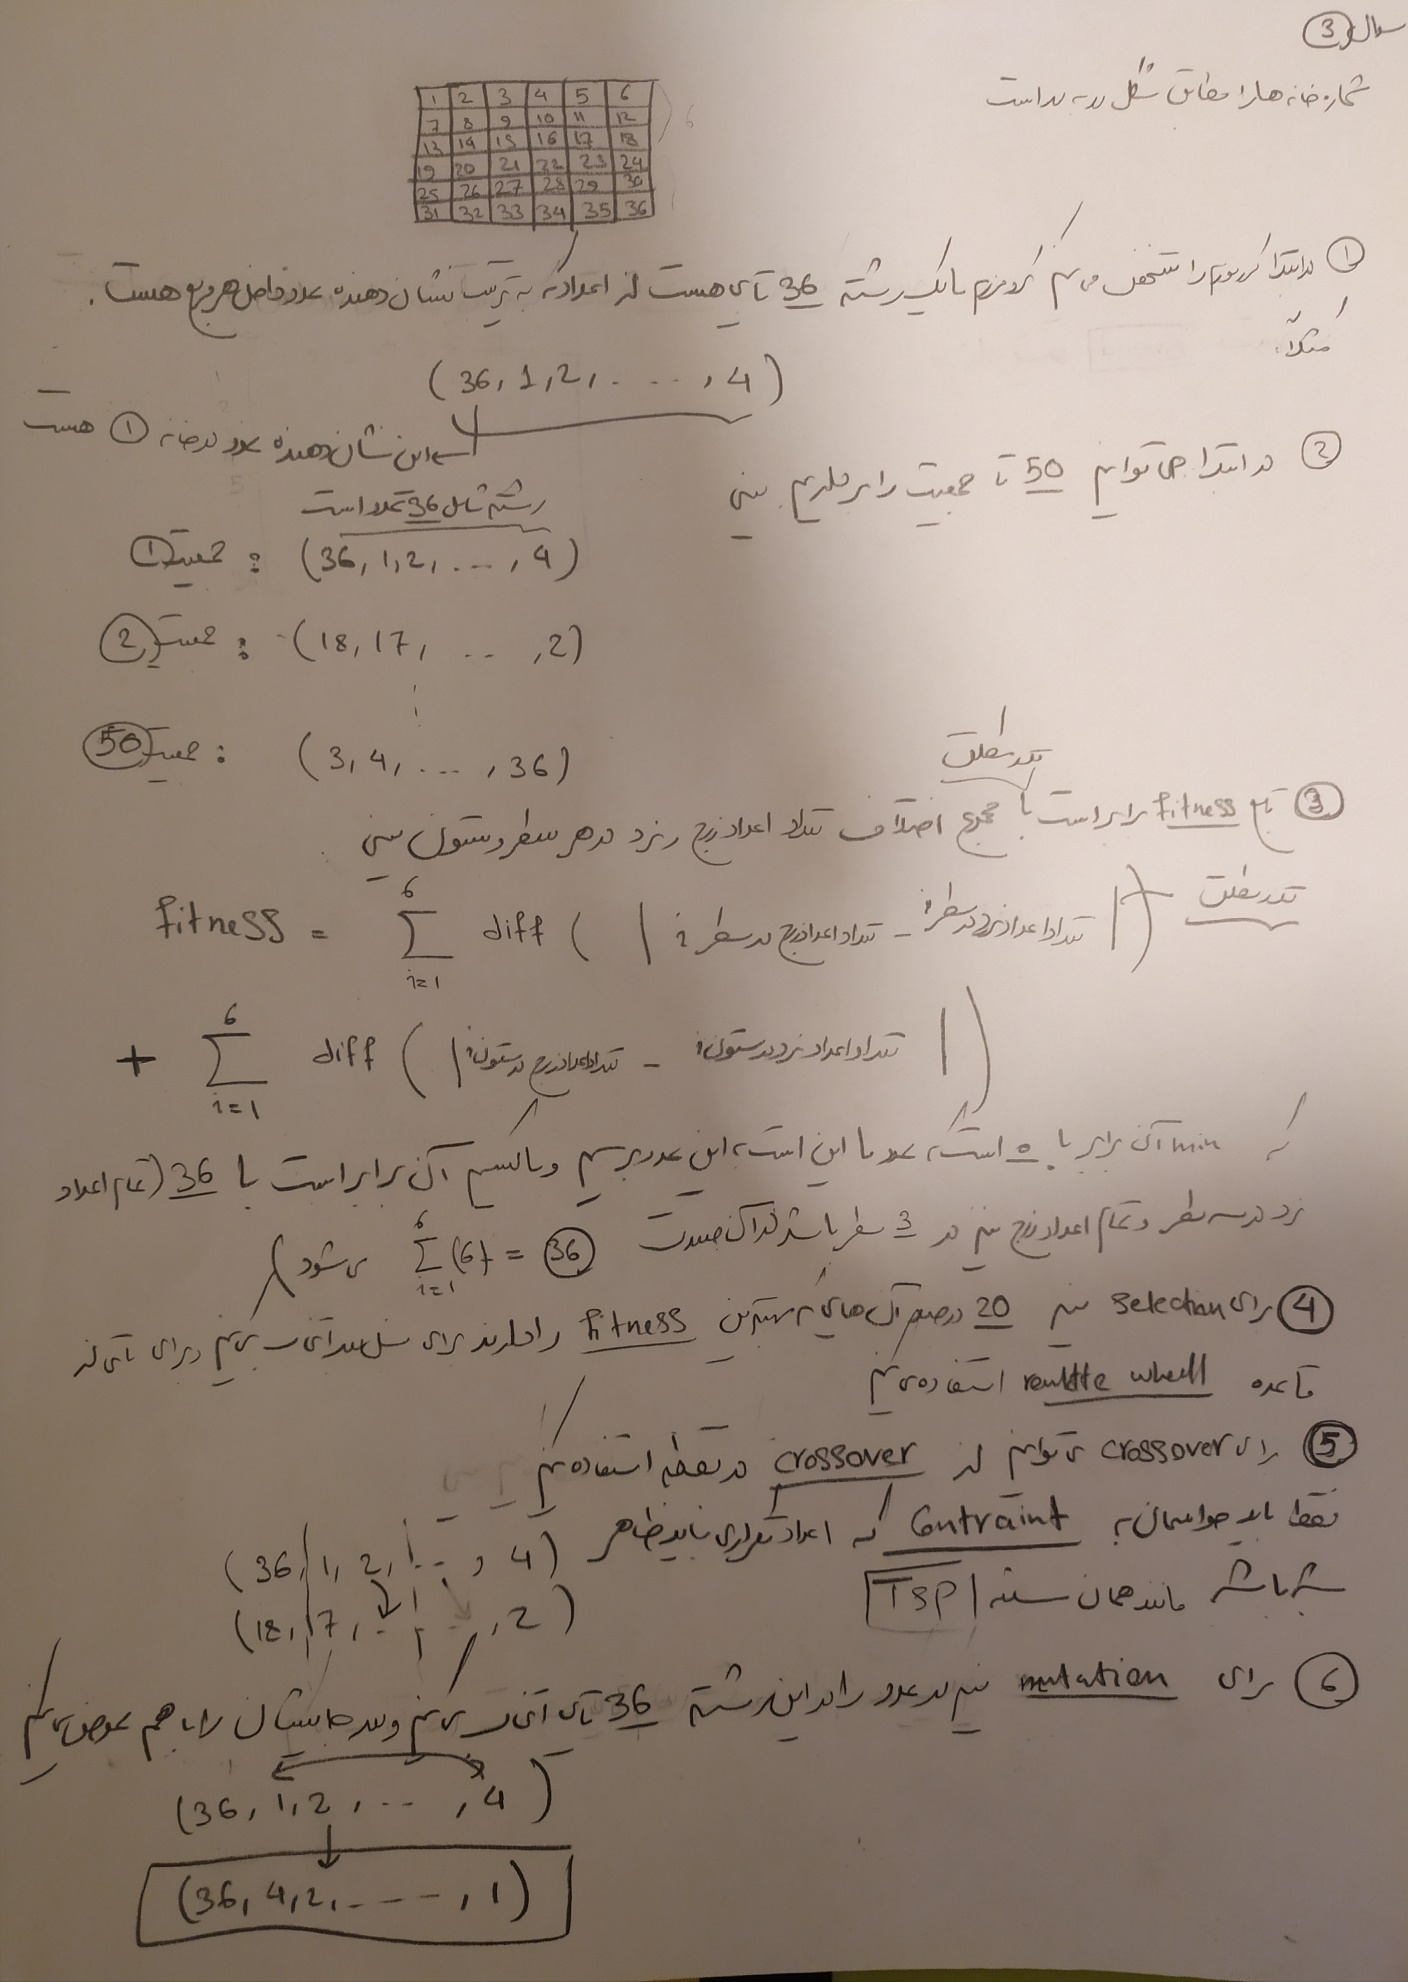 سوال 3
شماره خانه ها را مطابق شکل رو به رو است
1 2 3 4 5 6
7 8 9 10 11 12
13 14 15 16 17 18
19 20 21 22 23 24
25 26 27 28 29 30
31 32 33 34 35 36
6
① در ابتدا کروموزوم را مشخص می کنیم کروموزوم ما یک رشته 36 تایی هست از اعداد که به ترتیب نشان دهنده عدد داخل هر مربع هست.
مثلاً:
(36, 1, 2, ..., 4)
این نشان دهنده عدد در خانه ① هست
② در ابتدا می توانیم 50 تا جمعیت را بر داریم یعنی
رشته شامل 36 عدد است
جمعیت ① : (36, 1, 2, ..., 4)
جمعیت ② : (18, 17, ..., 2)
جمعیت 50 : (3, 4, ..., 36)
قدر مطلق
③ تابع fitness برابر است با مجموع اختلاف تعداد اعداد زوج و فرد در هر سطر و ستون یعنی
fitness = 6 Σ i=1 diff ( | تعداد اعداد زوج در سطر i - تعداد اعداد فرد در سطر i | ) قدر مطلق
+ 6 Σ i=1 diff ( | تعداد اعداد زوج در ستون i - تعداد اعداد فرد در ستون i | )
که min آن برابر با 0 است که ما این است به این عدد برسیم و ماکسیمم آن برابر است با 36 (تمام اعداد
فرد در سه سطر و تمام اعداد زوج نیز در 3 سطر باشد در آن صورت 6 Σ i=1 (6) = 36 می شود)
④ برای selection نیز 20 درصد آن هایی که بهترین fitness را دارند برای نسل بعد انتخاب می کنیم و برای مابقی از
قاعده roulette wheell استفاده می کنیم
⑤ برای crossover می توانیم از crossover دو نقطه استفاده کنیم
فقط باید حواسمان به Contraint که اعداد تکراری نباید ظاهر
شده باشد مانند همان مسئله TSP
(36, 1, 2, ..., 4)
(18, 17, ..., 2)
⑥ برای mutation نیز دو عدد را در این رشته 36 تایی انتخاب می کنیم و جایشان را با هم عوض می کنیم
(36, 1, 2, ..., 4)
(36, 4, 2, ----, 1)